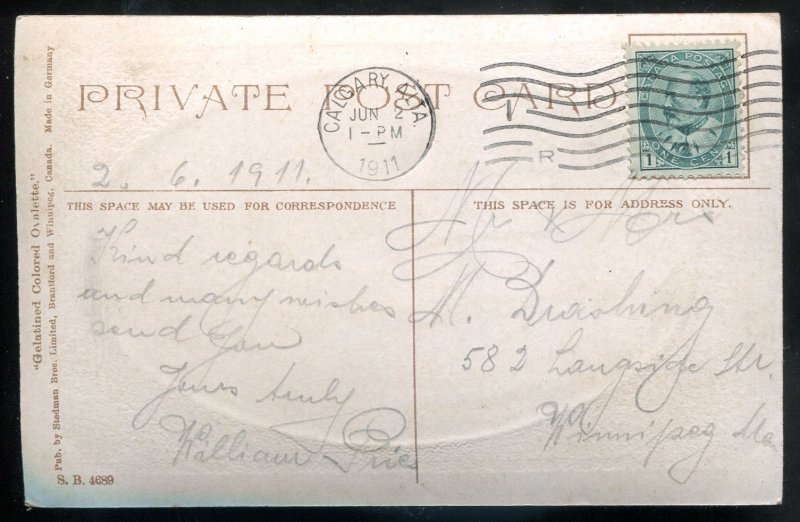 PRIVATE POST CARD
CALGARY, ALTA.
JUN 2
1 - PM
1911
R
CANADA POSTAGE
1 ONE CENT 1
2. 6. 1911.
THIS SPACE MAY BE USED FOR CORRESPONDENCE
Kind regards
and many wishes
send you
Yours truly
William
THIS SPACE IS FOR ADDRESS ONLY.
Mr & Mrs
582 Langside Str.
Winnipeg Man
"Gelatined Colored Ovalette."
Pub. by Stedman Bros. Limited, Brantford and Winnipeg, Canada. Made in Germany
S. B. 4689